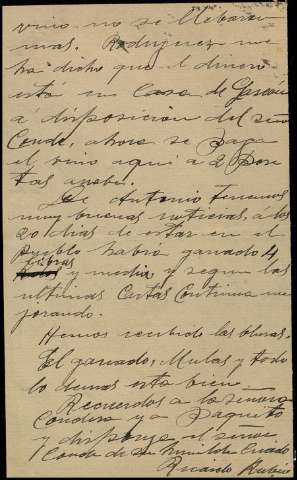 vino no se llebara
mas. Rodriguez me
ha dicho que el dinero
está en casa de Garcia
a disposicion del señor
Conde, ahora se paga
el vino aqui a 2 Pese
tas
De Antonio tenemos
muy buenas noticias, a los
20 dias de estar en el
Pueblo habia ganado 4
libras
y media y segun las
ultimas Cartas Continua me
jorando.
Hemos recibido las
El ganado, Mulas y todo
lo demas esta bien
Recuerdos a la señora
Condesa y a Paquito
y disponga el señor
Conde de su humilde Criado
Ricardo Rubio